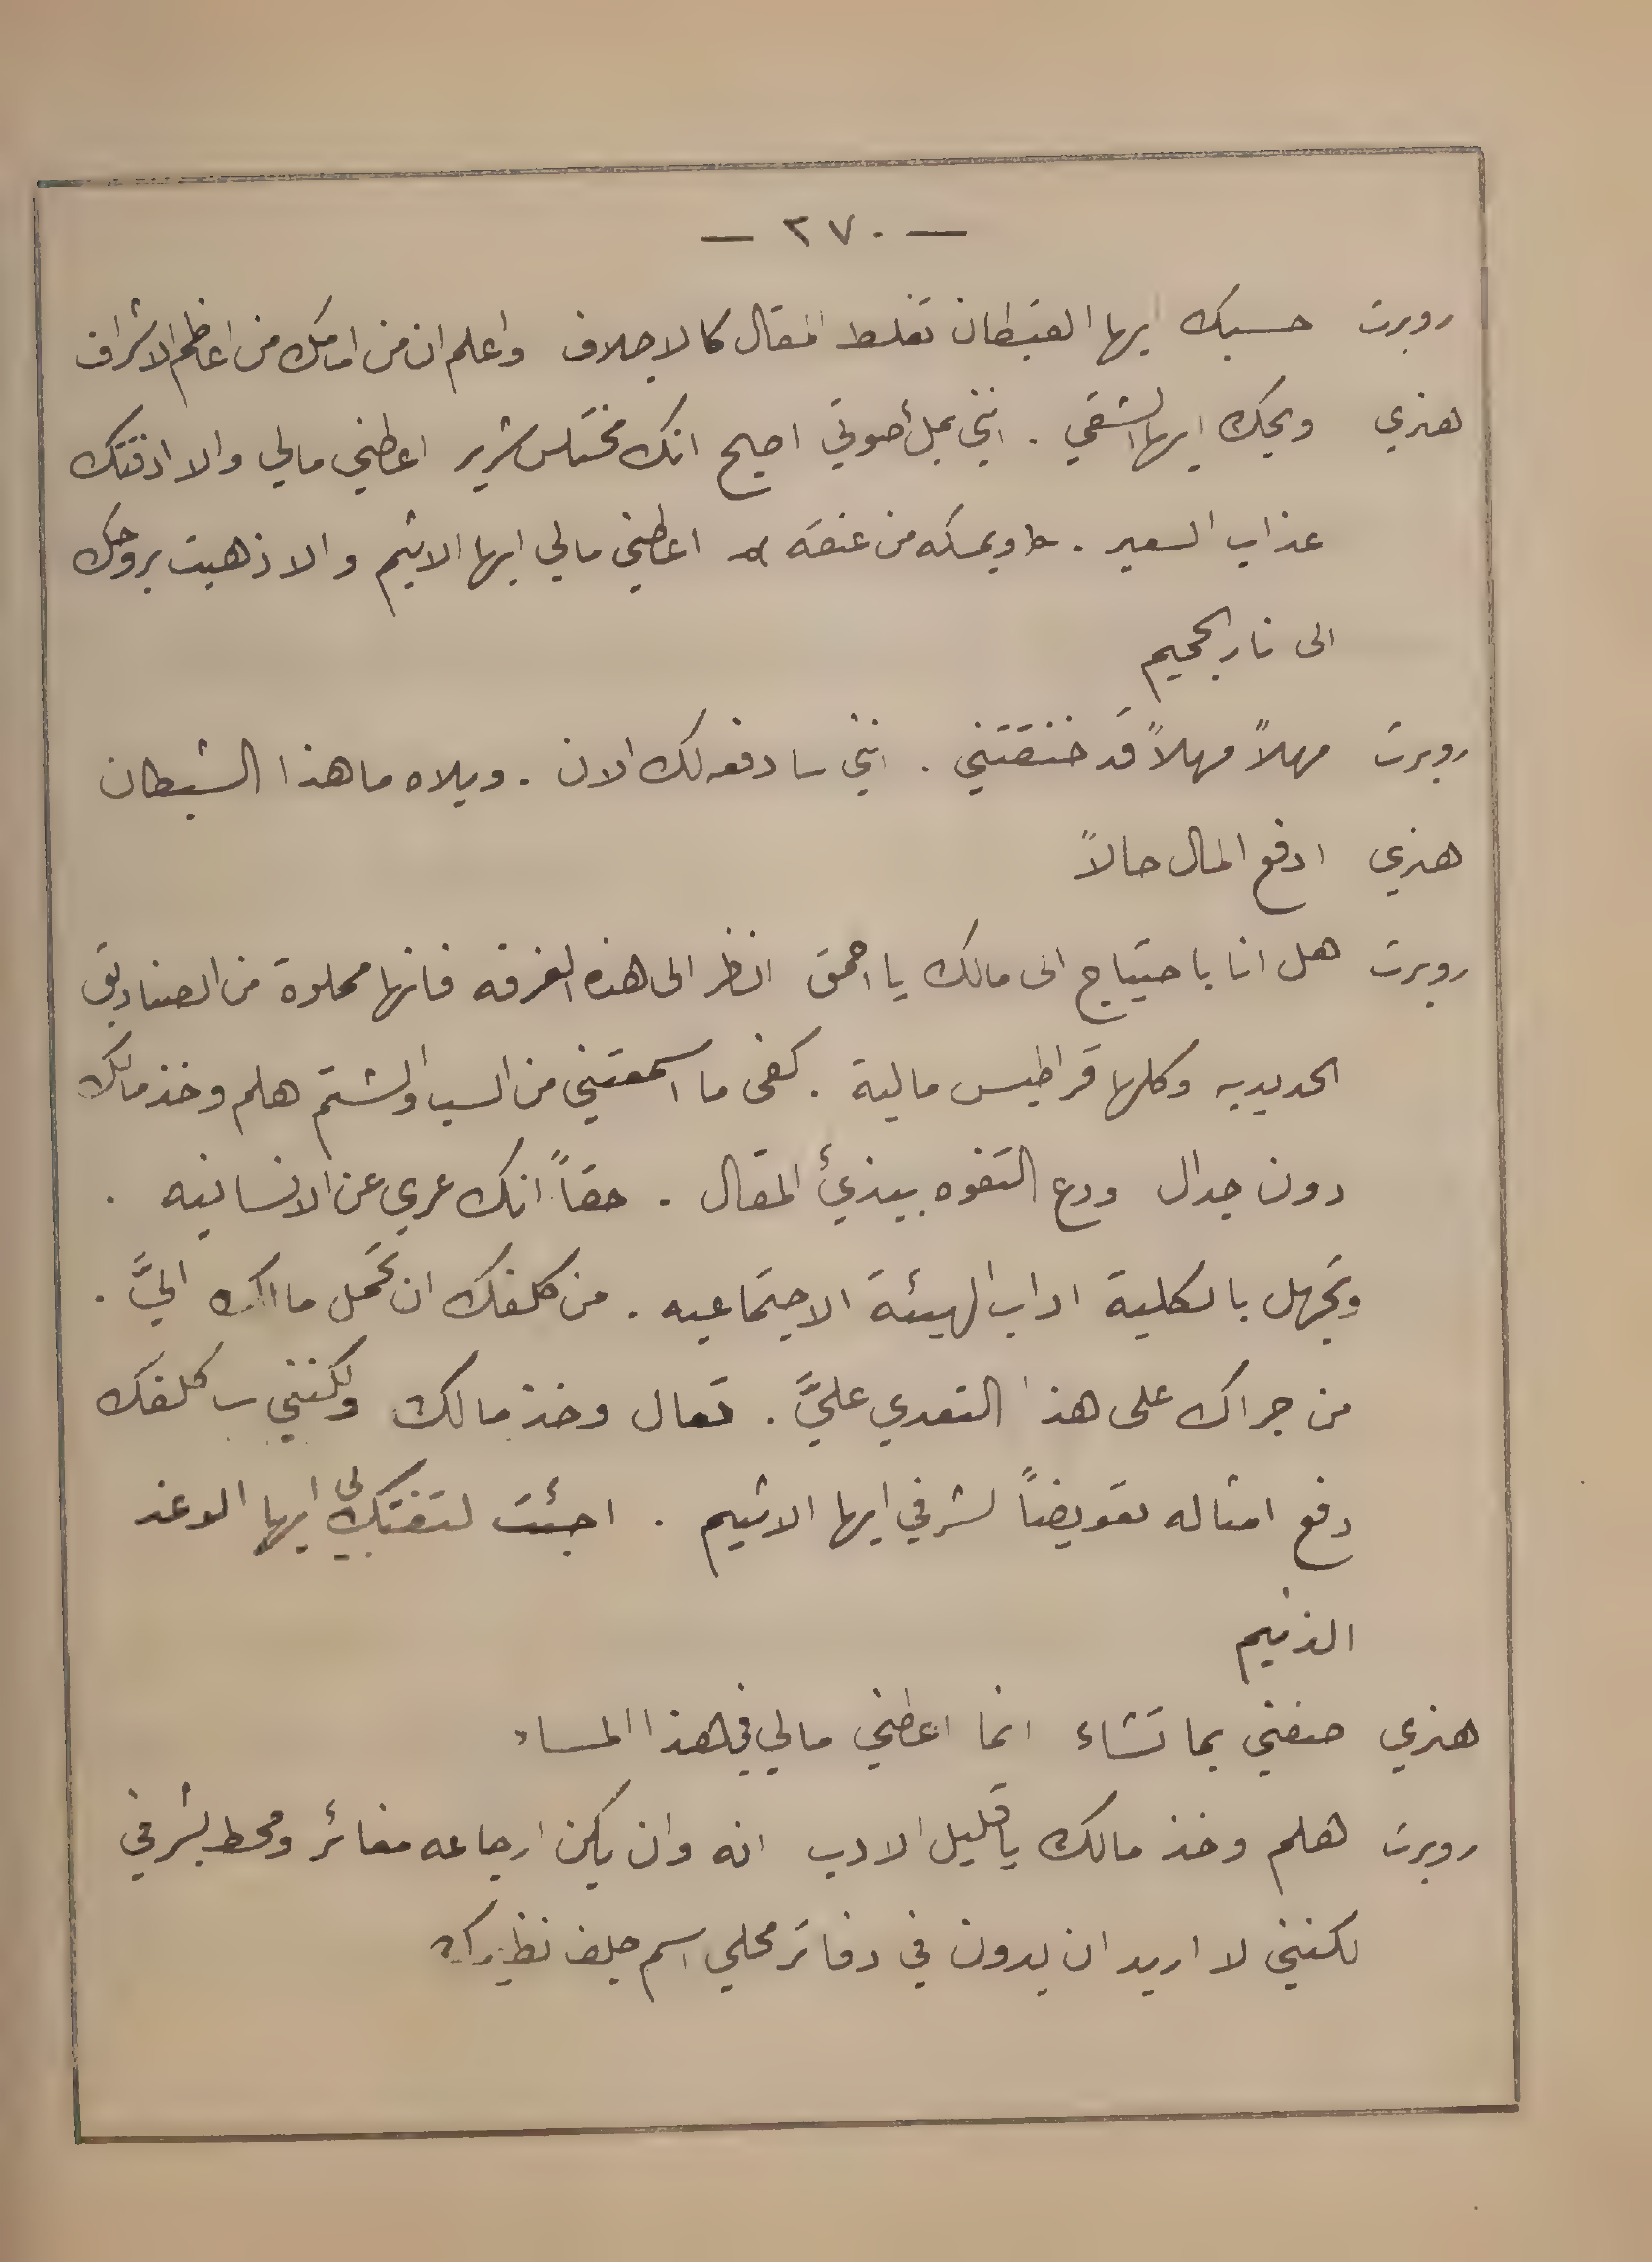 — ٢٧٠ —
روبرت حسبك ايها القبطان تغلط المقال كالاجلاف واعلم ان من امامك من اعاظم الاشراف
هنري ويحك ايها الشقي . انني بملأ صوتي اصيح انك مختلس شرير اعطني مالي والا اذقتك
عذاب السعير . ويمسكه من عنقه اعطني مالي ايها الاثيم والا ذهبت بروحك
الى نار الجحيم
روبرت مهلاً مهلاً قد خنقتني . انني سادفعه لك الان . ويلاه ما هذا الشيطان
هنري ادفع المال حالاً
روبرت هل انا باحتياج الى مالك يا احمق انظر الى هذه الغرفه فانها مملوة من الصناديق
الحديديه وكلها قراطيس مالية . كفى ما اسمعتني من السب والشتم هلم وخذ مالك
دون جدال ودع التفوه ببذيُّ المقال . حقاً انك عري عن الانسانيه .
وتجهل بالكلية اداب الهيئة الاجتماعيه . من كلفك ان تحمل مالك اليَّ .
من جراك على هذا التعدي عليَّ . تعال وخذ مالك ولكنني سا كلفك
دفع امثاله تعويضاً لشرفي ايها الاثيم . اجئت لتفتك بي ايها الوغد
الذميم
هنري صفني بما تشاء انما اعطني مالي في هذا المساء
روبرت هلم وخذ مالك يا قليل الادب انه وان يكن ارجاعه مغائر ومحط بشرفي
لكنني لا اريد ان يدون في دفاتر محلي اسم جلف نظيرك